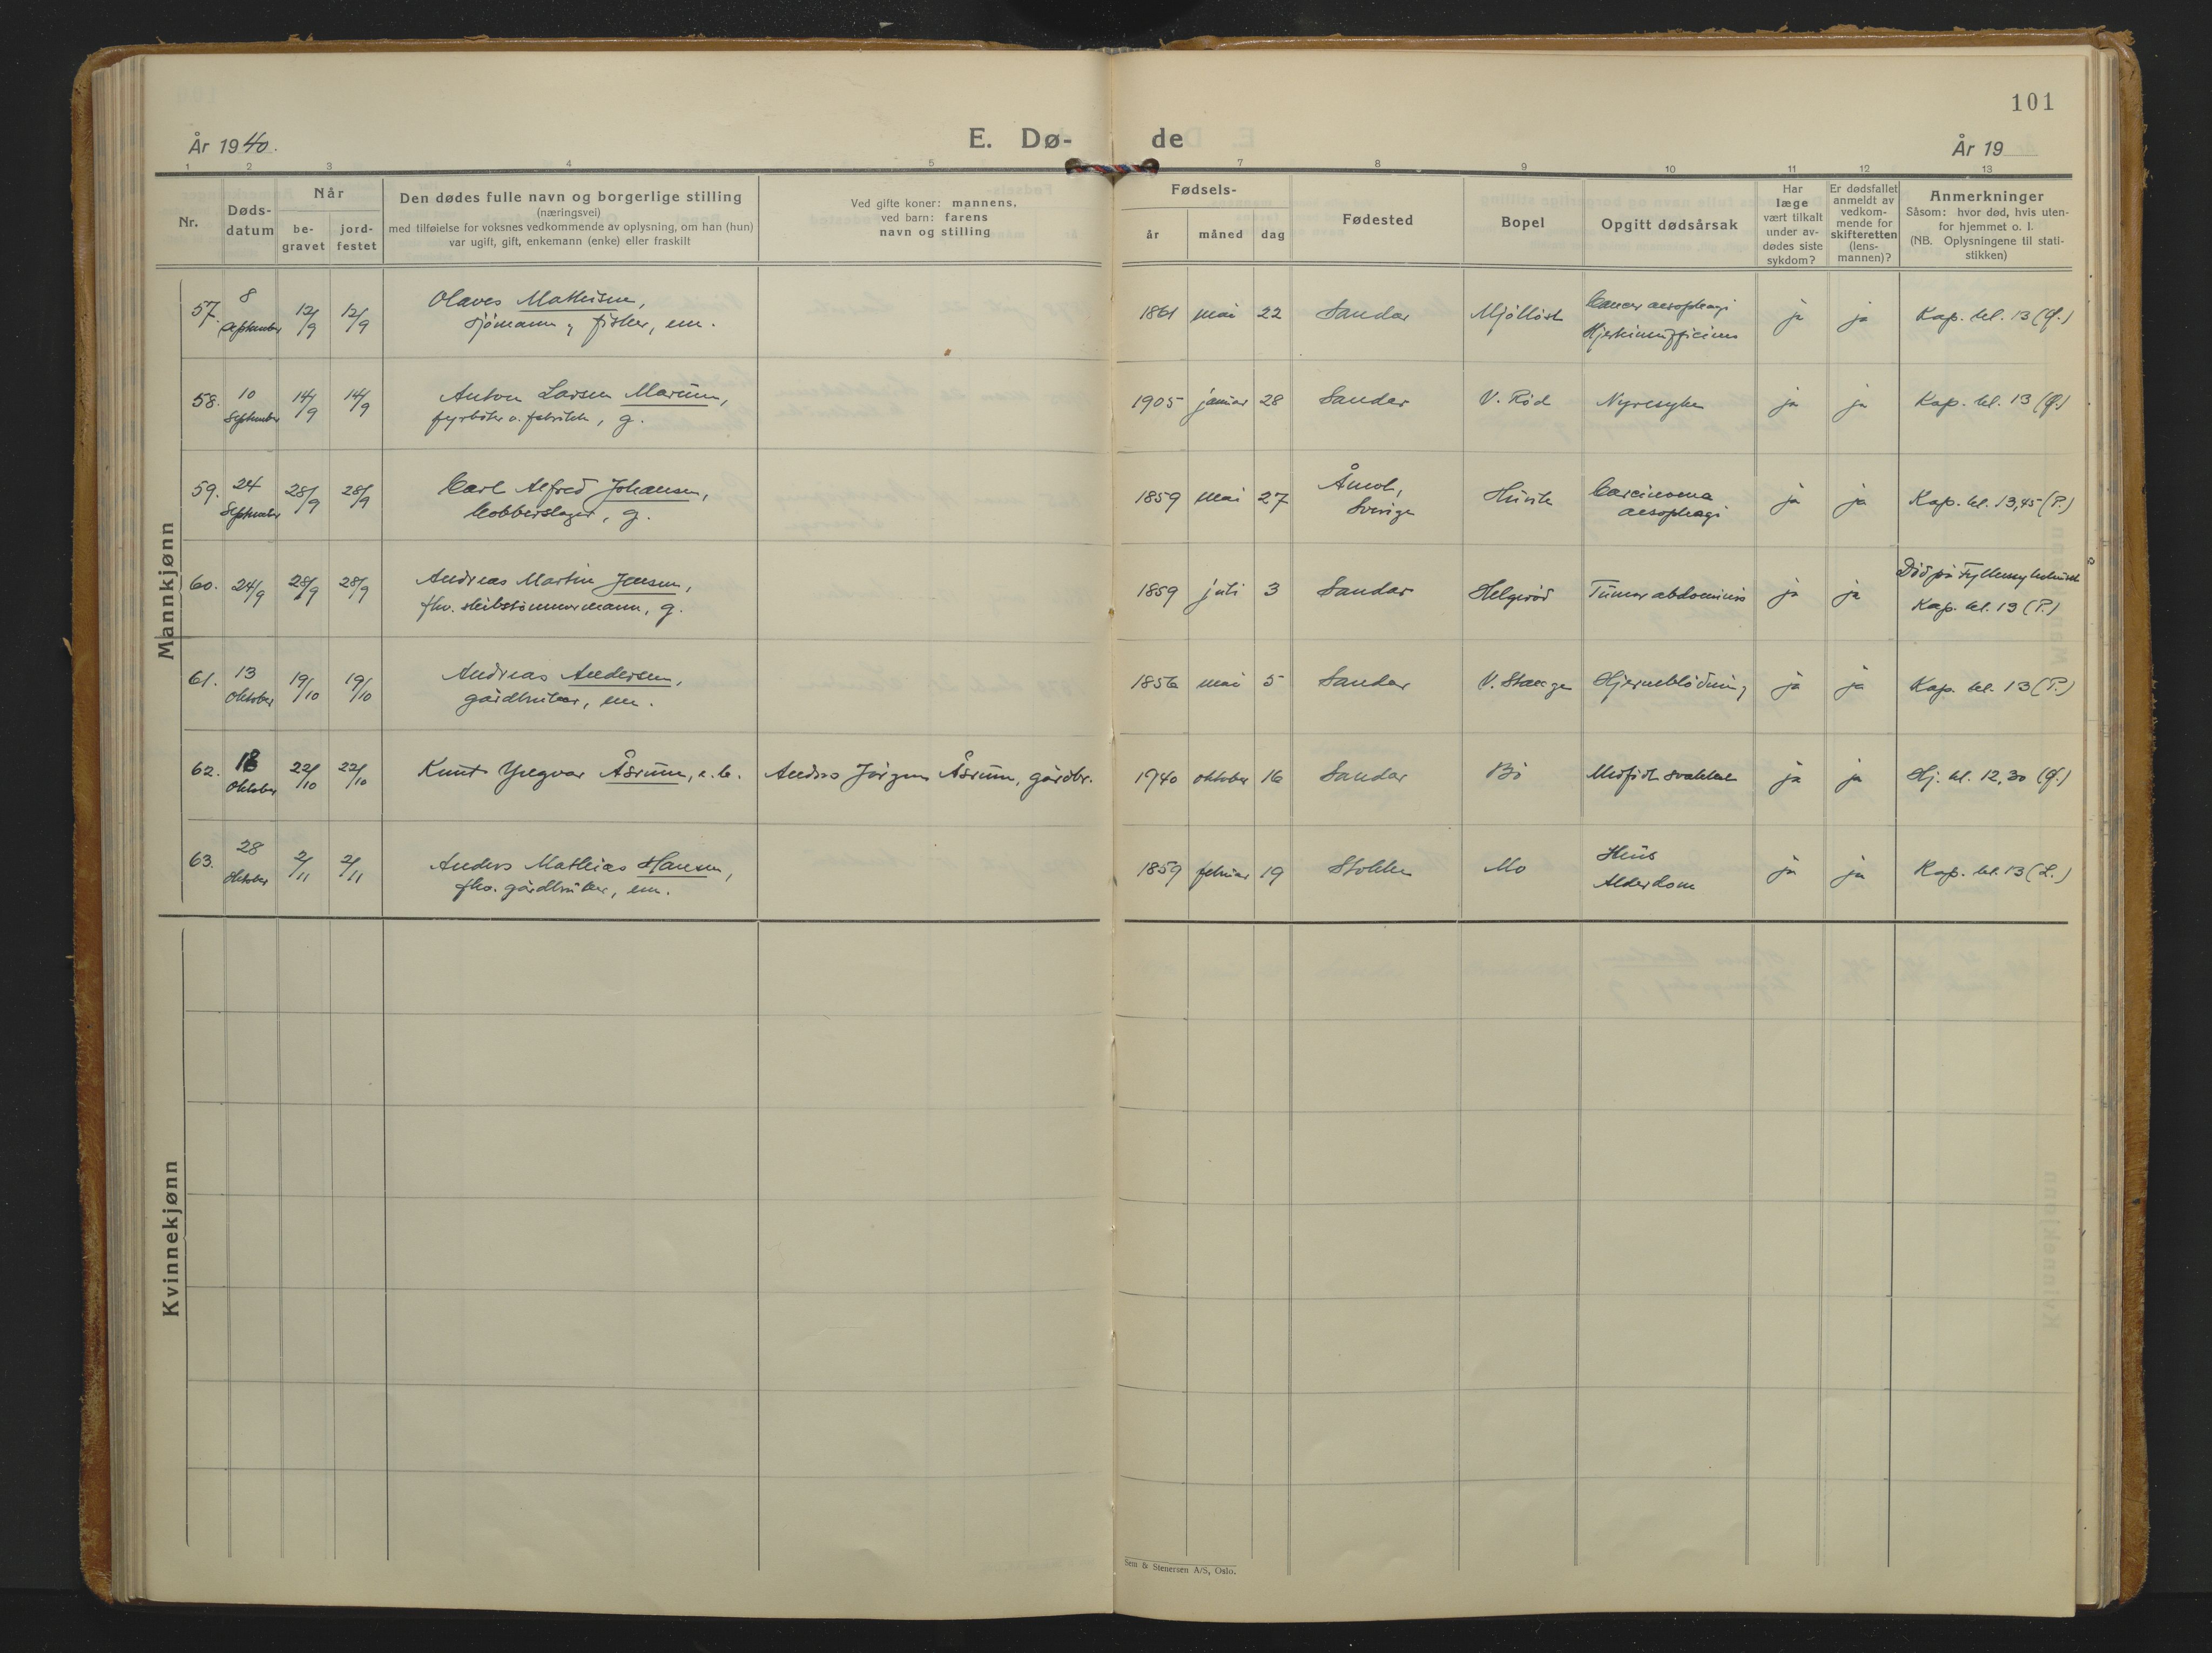 101
År 1940.
E. Dø-
de
År 19
1 2 3 4 5 7 8 9 10 11 12 13
Nr.
Døds-
datum
Når
be-
gravet
jord-
festet
Den dødes fulle navn og borgerlige stilling
(næringsvei)
med tilføielse for voksnes vedkommende av oplysning, om han (hun)
var ugift, gift, enkemann (enke) eller fraskilt
Ved gifte koner: mannens,
ved barn: farens
navn og stilling
Fødsels-
år
måned
dag
Fødested
Bopel
Opgitt dødsårsak
Har
læge
vært tilkalt
under av-
dødes siste
sykdom?
Er dødsfallet
anmeldt av
vedkom-
mende for
skifteretten
(lens-
mannen)?
Anmerkninger
Såsom: hvor død, hvis uten-
for hjemmet o. l.
(NB. Oplysningene til stati-
stikken)
Mannkjønn
57. 8 september 12/9 12/9
Olaves Mathisen,
sjömann og fisker, em.
1861 mai 22 Sandar
Cancer aesophagi
Hjerteinsufficiens
ja ja Kap. kl. 13 (Ø.)
58. 10 September 14/9 14/9
Anton Larsen Marum,
fyrböter v. fabrikk, g.
1905 januar 28 Sandar V. Röd Nyresyke ja ja Kap. kl. 13 (Ø.)
59. 24 September 28/9 28/9
Carl Alfred Johansen,
kobberslager, g.
1859 mai 27
Åmol,
Sverige
Huvik
Carcinoma
aesophagi
ja ja Kap. kl. 13,45 (P.)
60. 24/9 28/9 28/9
Andreas Martin Jensen,
fhv. skibstömmermann, g.
1859 juli 3 Sandar Helgeröd Tumor abdominis ja ja
Död på Fylkessykehuset
Kap. kl. 13 (P.)
61. 13 Oktober 19/10 19/10
Andreas Andersen,
gårdbruker, em.
1856 mai 5 Sandar V. Stange Hjerneblödning ja ja Kap. kl. 13 (P.)
62. 18 Oktober 22/10 22/10
Knut Yngvar Åsrum, e. b. Anders Jörgen Åsrum, gårdbr.
1940 oktober 16 Sandar Bö Medfödt svakhet ja ja Hj. kl. 12,30 (Ø.)
63. 28 Oktober 2/11 2/11
Anders Mathias Hansen,
fhv. gårdbruker, em.
1859 februar 19 Stokke Mo
Alderdom
ja ja Kap. kl. 13 (L.)
Kvinnekjønn
Sem & Stenersen A/S, Oslo.